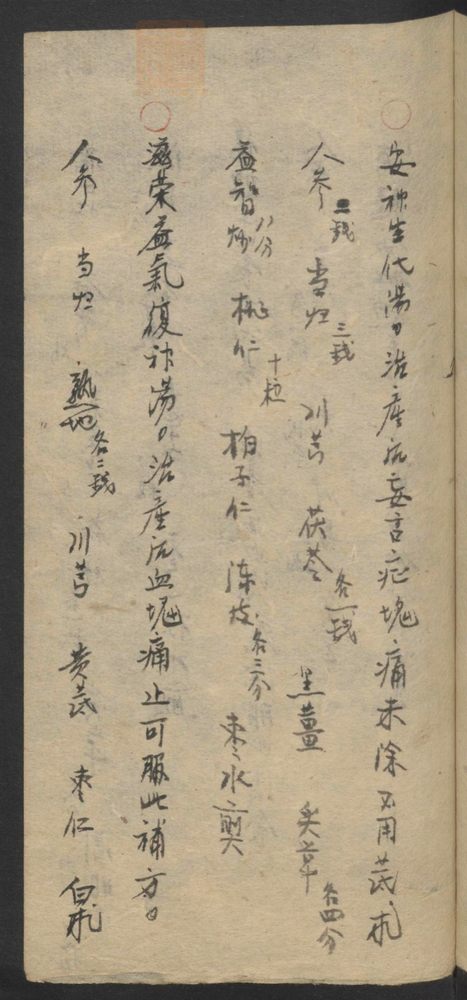 ○安神生化湯。治產后妄言症塊痛未除不用芪朮
人参二钱 当归三钱 川芎 茯苓各一钱 黑薑 炙草各四分
益智炒八分 桃仁十粒 柏子仁 陈皮各三分 枣水煎
○滋荣益氣復神湯。治產后血塊痛止可服此補方。
人参 当归 熟地各二钱 川芎 黄芪 枣仁 白朮